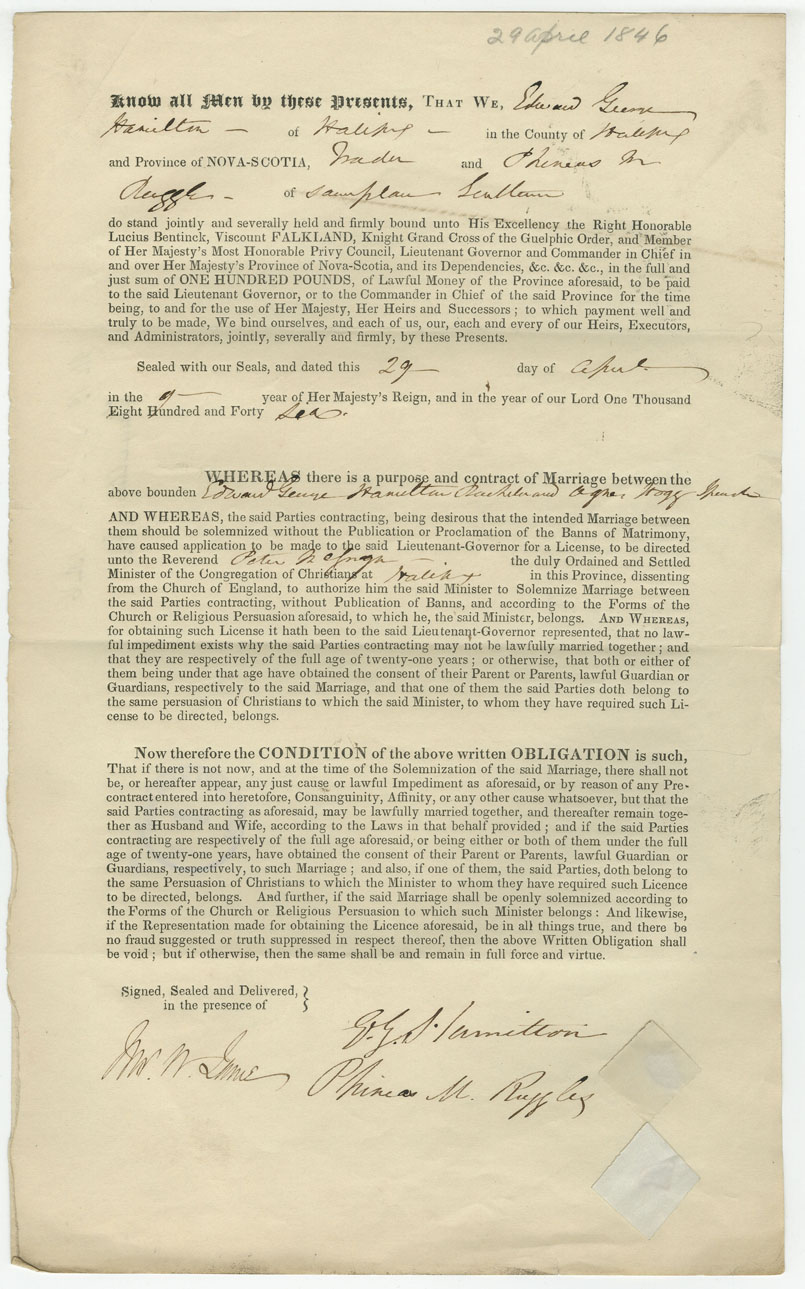 29 April 1846
Know all Men by these Presents, THAT WE, Edward George
Hamilton – of Halifax – in the County of Halifax
and Province of NOVA-SCOTIA, Trader and Phineas M
Ruggles – of same place Gentleman
do stand jointly and severally held and firmly bound unto His Excellency the Right Honorable
Lucius Bentinck, Viscount FALKLAND, Knight Grand Cross of the Guelphic Order, and Member
of Her Majesty's Most Honorable Privy Council, Lieutenant Governor and Commander in Chief in
and over Her Majesty's Province of Nova-Scotia, and its Dependencies, &c. &c. &c., in the full and
just sum of ONE HUNDRED POUNDS, of Lawful Money of the Province aforesaid, to be paid
to the said Lieutenant Governor, or to the Commander in Chief of the said Province for the time
being, to and for the use of Her Majesty, Her Heirs and Successors ; to which payment well and
truly to be made, We bind ourselves, and each of us, our, each and every of our Heirs, Executors,
and Administrators, jointly, severally and firmly, by these Presents.
Sealed with our Seals, and dated this 29 day of April
in the 9 year of Her Majesty's Reign, and in the year of our Lord One Thousand
Eight Hundred and Forty Six.
WHEREAS there is a purpose and contract of Marriage between the
above bounden Edward George Hamilton Bachelor and Agnes Hogg Spinster
AND WHEREAS, the said Parties contracting, being desirous that the intended Marriage between
them should be solemnized without the Publication or Proclamation of the Banns of Matrimony,
have caused application to be made to the said Lieutenant-Governor for a License, to be directed
unto the Reverend Peter the duly Ordained and Settled
Minister of the Congregation of Christians at Halifax in this Province, dissenting
from the Church of England, to authorize him the said Minister to Solemnize Marriage between
the said Parties contracting, without Publication of Banns, and according to the Forms of the
Church or Religious Persuasion aforesaid, to which he, the said Minister, belongs. AND WHEREAS,
for obtaining such License it hath been to the said Lieutenant-Governor represented, that no law-
ful impediment exists why the said Parties contracting may not be lawfully married together ; and
that they are respectively of the full age of twenty-one years ; or otherwise, that both or either of
them being under that age have obtained the consent of their Parent or Parents, lawful Guardian or
Guardians, respectively to the said Marriage, and that one of them the said Parties doth belong to
the same persuasion of Christians to which the said Minister, to whom they have required such Li-
cense to be directed, belongs.
Now therefore the CONDITION of the above written OBLIGATION is such,
That if there is not now, and at the time of the Solemnization of the said Marriage, there shall not
be, or hereafter appear, any just cause or lawful Impediment as aforesaid, or by reason of any Pre-
contract entered into heretofore, Consanguinity, Affinity, or any other cause whatsoever, but that the
said Parties contracting as aforesaid, may be lawfully married together, and thereafter remain toge-
ther as Husband and Wife, according to the Laws in that behalf provided ; and if the said Parties
contracting are respectively of the full age aforesaid, or being either or both of them under the full
age of twenty-one years, have obtained the consent of their Parent or Parents, lawful Guardian or
Guardians, respectively, to such Marriage ; and also, if one of them, the said Parties, doth belong to
the same Persuasion of Christians to which the Minister to whom they have required such Licence
to be directed, belongs. And further, if the said Marriage shall be openly solemnized according to
the Forms of the Church or Religious Persuasion to which such Minister belongs : And likewise,
if the Representation made for obtaining the Licence aforesaid, be in all things true, and there be
no fraud suggested or truth suppressed in respect thereof, then the above Written Obligation shall
be void ; but if otherwise, then the same shall be and remain in full force and virtue.
Signed, Sealed and Delivered,
in the presence of
E. G. Hamilton
Phineas M. Ruggles